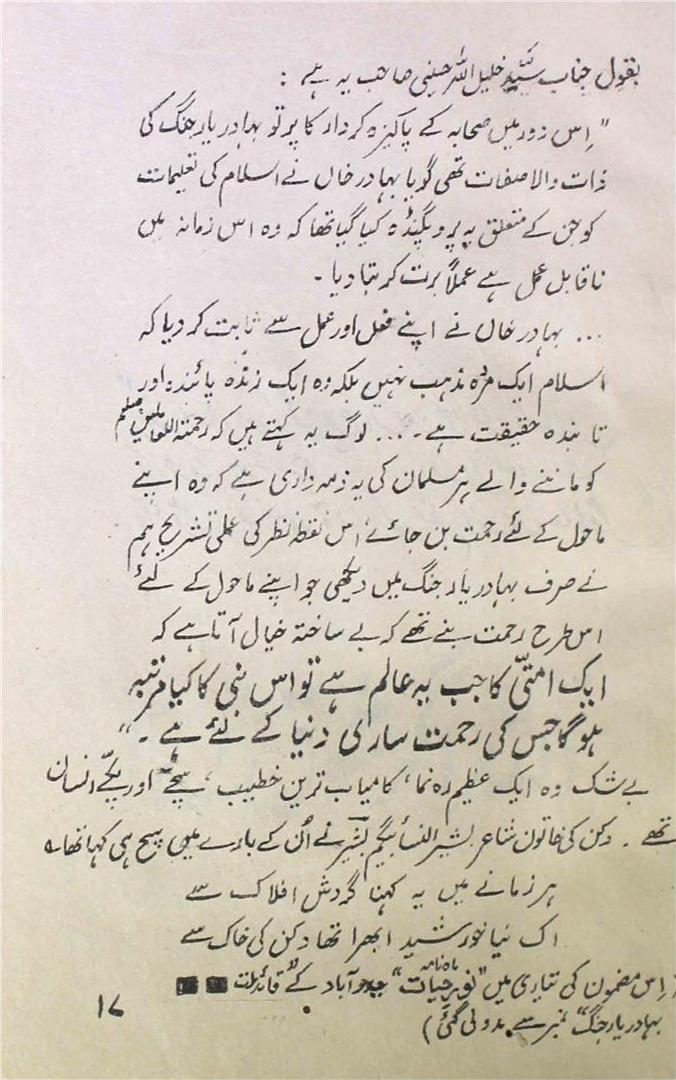 بقول جناب سید خلیل اللہ حسینی صاحب یہ ہے :
" اِس دور میں صحابہ کے پاکیزہ کردار کا پرتو بہادر یار جنگ کی
ذات والا صفات تھی گویا بہادر خاں نے اسلام کی تعلیمات
کو جن کے متعلق یہ پروپگنڈہ کیا گیا تھا کہ وہ اس زمانہ میں
ناقابل عمل ہے عملاً برت کر بتا دیا ۔
... بہادر خاں نے اپنے فعل اور عمل سے ثابت کر دیا کہ
اسلام ایک مردہ مذہب نہیں بلکہ وہ ایک زندہ پائندہ اور
تابندہ حقیقت ہے ۔ ... لوگ یہ کہتے ہیں کہ رحمتہ اللعالمین صلعم
کو ماننے والے ہر مسلمان کی یہ ذمہ داری ہے کہ وہ اپنے
ماحول کے لئے رحمت بن جائے، اس نقطۂ نظر کی عملی تشریح ہم
نے صرف بہادر یار جنگ میں دیکھی جو اپنے ماحول کے لئے
اس طرح رحمت بنے تھے کہ بے ساختہ خیال آتا ہے کہ
ایک امتی کا جب یہ عالم ہے تو اس نبی کا کیا مرتبہ
ہوگا جس کی رحمت ساری دنیا کے لئے ہے ۔ "
بے شک وہ ایک عظیم رہ نما، کامیاب ترین خطیب، سچے اور پکے انسان
تھے ۔ دکن کی خاتون شاعر بشیر النسأ بیگم بشیر نے اُن کے بارے میں سچ ہی کہا تھا ؎
ہر زمانے میں یہ کہنا گردش افلاک سے
اک نیا خورشید ابھرا تھا دکن کی خاک سے
( اِس مضمون کی تیاری میں ماہنامہ "نوید حیات" حیدرآباد کے "قائد ملت
بہادر یار جنگ" نمبر سے مدد لی گئی )
۱۷